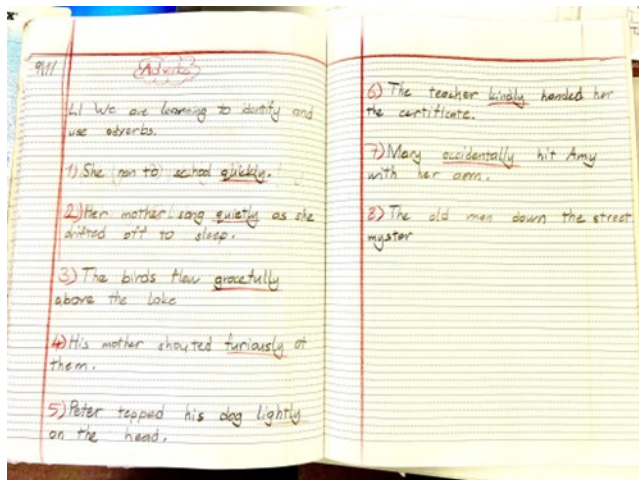 9/11
Adverbs
LI We are learning to identify and
use adverbs.
1) She ran to school quickly.
2) Her mother sang quietly as she
drifted off to sleep.
3) The birds flew gracefully
above the lake
4) His mother shouted furiously at
them.
5) Peter tapped his dog lightly
on the head.
6) The teacher kindly handed her
the certificate.
7) Mary accidentally hit Amy
with her arm.
8) The old man down the street
myster